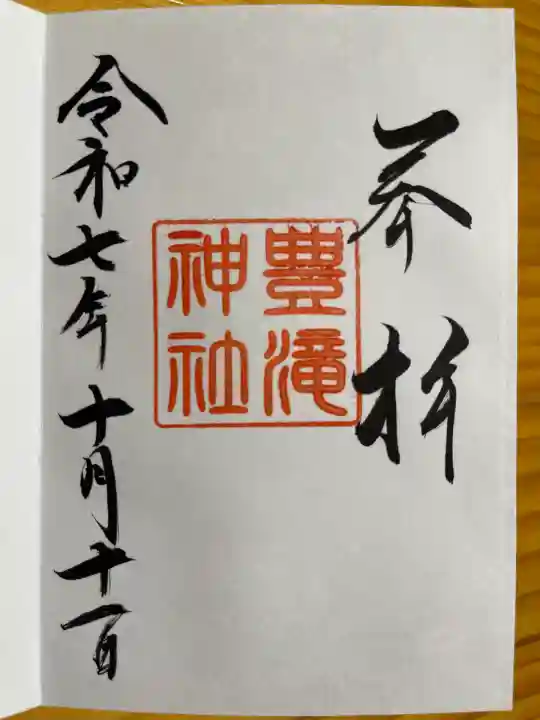 奉拝
豊滝
神社
令和七年十月十一日